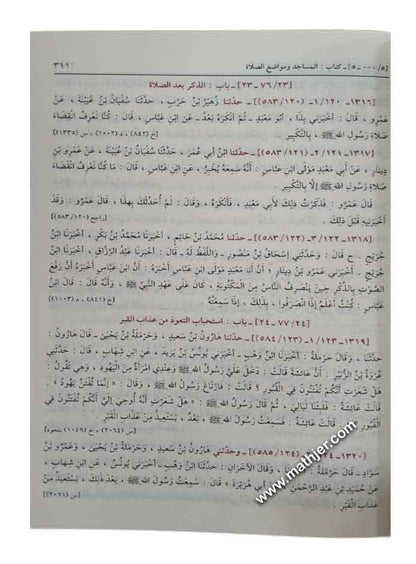 [٥/٠٠٠ـ ٥] ـ كتاب : المساجد ومواضع الصلاة ٣١١
[٢٣/ ٧٦ـ ٢٣] ـ باب : الذكر بعد الصلاة
١٣١٦ـ ١٢٠/ ١ـ (١٢٠/ ٥٨٣)] ـ حدثنا زُهَيْرُ بْنُ حَرْبٍ ، حَدَّثَنَا سُفْيَانُ بْنُ عُيَيْنَةَ ، عَنْ
عَمْرٍو ، قَالَ : أَخْبَرَنِي بِذَا ، أَبُو مَعْبَدٍ ـ ثُمَّ أَنْكَرَهُ بَعْدُ ـ عَنِ ابْنِ عَبَّاسٍ ، قَالَ : كُنَّا نَعْرِفُ انْقِضَاءَ
صَلَاةِ رَسُولِ اللهِ ﷺ ، بِالتَّكْبِيرِ
١٣١٧ـ ١٢١/ ٢ـ (١٢١/ ٥٨٣)] ـ حدثنا ابْنُ أَبِي عُمَرَ ، حَدَّثَنَا سُفْيَانُ بْنُ عُيَيْنَةَ ، عَنْ عَمْرِو بْنِ
دِينَارٍ ، عَنْ أَبِي مَعْبَدٍ مَوْلَى ابْنِ عَبَّاسٍ ؛ أَنَّهُ سَمِعَهُ يُخْبِرُ ، عَنِ ابْنِ عَبَّاسٍ ، قَالَ : مَا كُنَّا نَعْرِفُ
انْقِضَاءَ صَلَاةِ رَسُولِ اللهِ ﷺ إِلَّا بِالتَّكْبِيرِ
قَالَ عَمْرٌو : فَذَكَرْتُ ذَلِكَ لِأَبِي مَعْبَدٍ ، فَأَنْكَرَهُ ، وَقَالَ : لَمْ أُحَدِّثْكَ بِهَذَا ، قَالَ عَمْرٌو : وَقَدْ
أَخْبَرَنِيهِ قَبْلَ ذَلِكَ .
١٣١٨ـ ١٢٢/ ٣ـ (١٢٢/ ٥٨٣)] ـ حدثنا مُحَمَّدُ بْنُ حَاتِمٍ ، أَخْبَرَنَا مُحَمَّدُ بْنُ بَكْرٍ ، أَخْبَرَنَا ابْنُ
جُرَيْجٍ . ح قَالَ : وَحَدَّثَنِي إِسْحَاقُ بْنُ مَنْصُورٍ ـ وَاللَّفْظُ لَهُ ـ قَالَ : أَخْبَرَنَا عَبْدُ الرَّزَّاقِ ، أَخْبَرَنَا ابْنُ
جُرَيْجٍ ، أَخْبَرَنِي عَمْرُو بْنُ دِينَارٍ ؛ أَنَّ أَبَا مَعْبَدٍ مَوْلَى ابْنِ عَبَّاسٍ أَخْبَرَهُ : أَنَّ ابْنَ عَبَّاسٍ أَخْبَرَهُ أَنَّ رَفْعَ
الصَّوْتِ بِالذِّكْرِ حِينَ يَنْصَرِفُ النَّاسُ مِنَ الْمَكْتُوبَةِ ، كَانَ عَلَى عَهْدِ النَّبِيِّ ﷺ ، وَأَنَّهُ قَالَ : قَالَ ابْنُ
عَبَّاسٍ : كُنْتُ أَعْلَمُ إِذَا انْصَرَفُوا ، بِذَلِكَ ، إِذَا سَمِعْتُهُ
[٢٤/ ٧٧ـ ٢٤] ـ باب : استحباب التعوذ من عذاب القبر
١٣١٩ـ ١٢٣/ ١ـ (١٢٣/ ٥٨٤)] ـ حدثنا هَارُونُ بْنُ سَعِيدٍ ، وَحَرْمَلَةُ بْنُ يَحْيَى ، قَالَ هَارُونُ :
حَدَّثَنَا ، وَقَالَ حَرْمَلَةُ : أَخْبَرَنَا ابْنُ وَهْبٍ ، أَخْبَرَنِي يُونُسُ بْنُ يَزِيدَ ، عَنِ ابْنِ شِهَابٍ ، قَالَ : حَدَّثَنِي
عُرْوَةُ بْنُ الزُّبَيْرِ ؛ أَنَّ عَائِشَةَ قَالَتْ : دَخَلَ عَلَيَّ رَسُولُ اللهِ ﷺ وَعِنْدِي امْرَأَةٌ مِنَ الْيَهُودِ ، وَهِيَ تَقُولُ :
هَلْ شَعَرْتِ أَنَّكُمْ تُفْتَنُونَ فِي الْقُبُورِ ؟ قَالَتْ : فَارْتَاعَ رَسُولُ اللهِ ﷺ ، وَقَالَ : « إِنَّمَا تُفْتَنُ يَهُودُ » ،
قَالَتْ عَائِشَةُ : فَلَبِثْنَا لَيَالِيَ ، ثُمَّ قَالَ رَسُولُ اللهِ ﷺ : « هَلْ شَعَرْتِ أَنَّهُ أُوحِيَ إِلَيَّ أَنَّكُمْ تُفْتَنُونَ فِي
الْقُبُورِ » ، قَالَتْ عَائِشَةُ : فَسَمِعْتُ رَسُولَ اللهِ ﷺ ، بَعْدُ ، يَسْتَعِيذُ مِنْ عَذَابِ الْقَبْرِ
١٣٢٠ـ ١٢٤/ ٢ـ (١٢٤/ ٥٨٥)] ـ وحدثني هَارُونُ بْنُ سَعِيدٍ ، وَحَرْمَلَةُ بْنُ يَحْيَى ، وَعَمْرُو بْنُ
سَوَّادٍ ـ قَالَ حَرْمَلَةُ : أَخْبَرَنَا ، وَقَالَ الْآخَرَانِ : حَدَّثَنَا ابْنُ وَهْبٍ ـ أَخْبَرَنِي يُونُسُ ، عَنِ ابْنِ شِهَابٍ ،
عَنْ حُمَيْدِ بْنِ عَبْدِ الرَّحْمَنِ ، عَنْ أَبِي هُرَيْرَةَ ؛ قَالَ : سَمِعْتُ رَسُولَ اللهِ ﷺ ، بَعْدَ ذَلِكَ ، يَسْتَعِيذُ مِنْ
عَذَابِ الْقَبْرِ . [س (٢٠٦١)]
www.mathjer.com